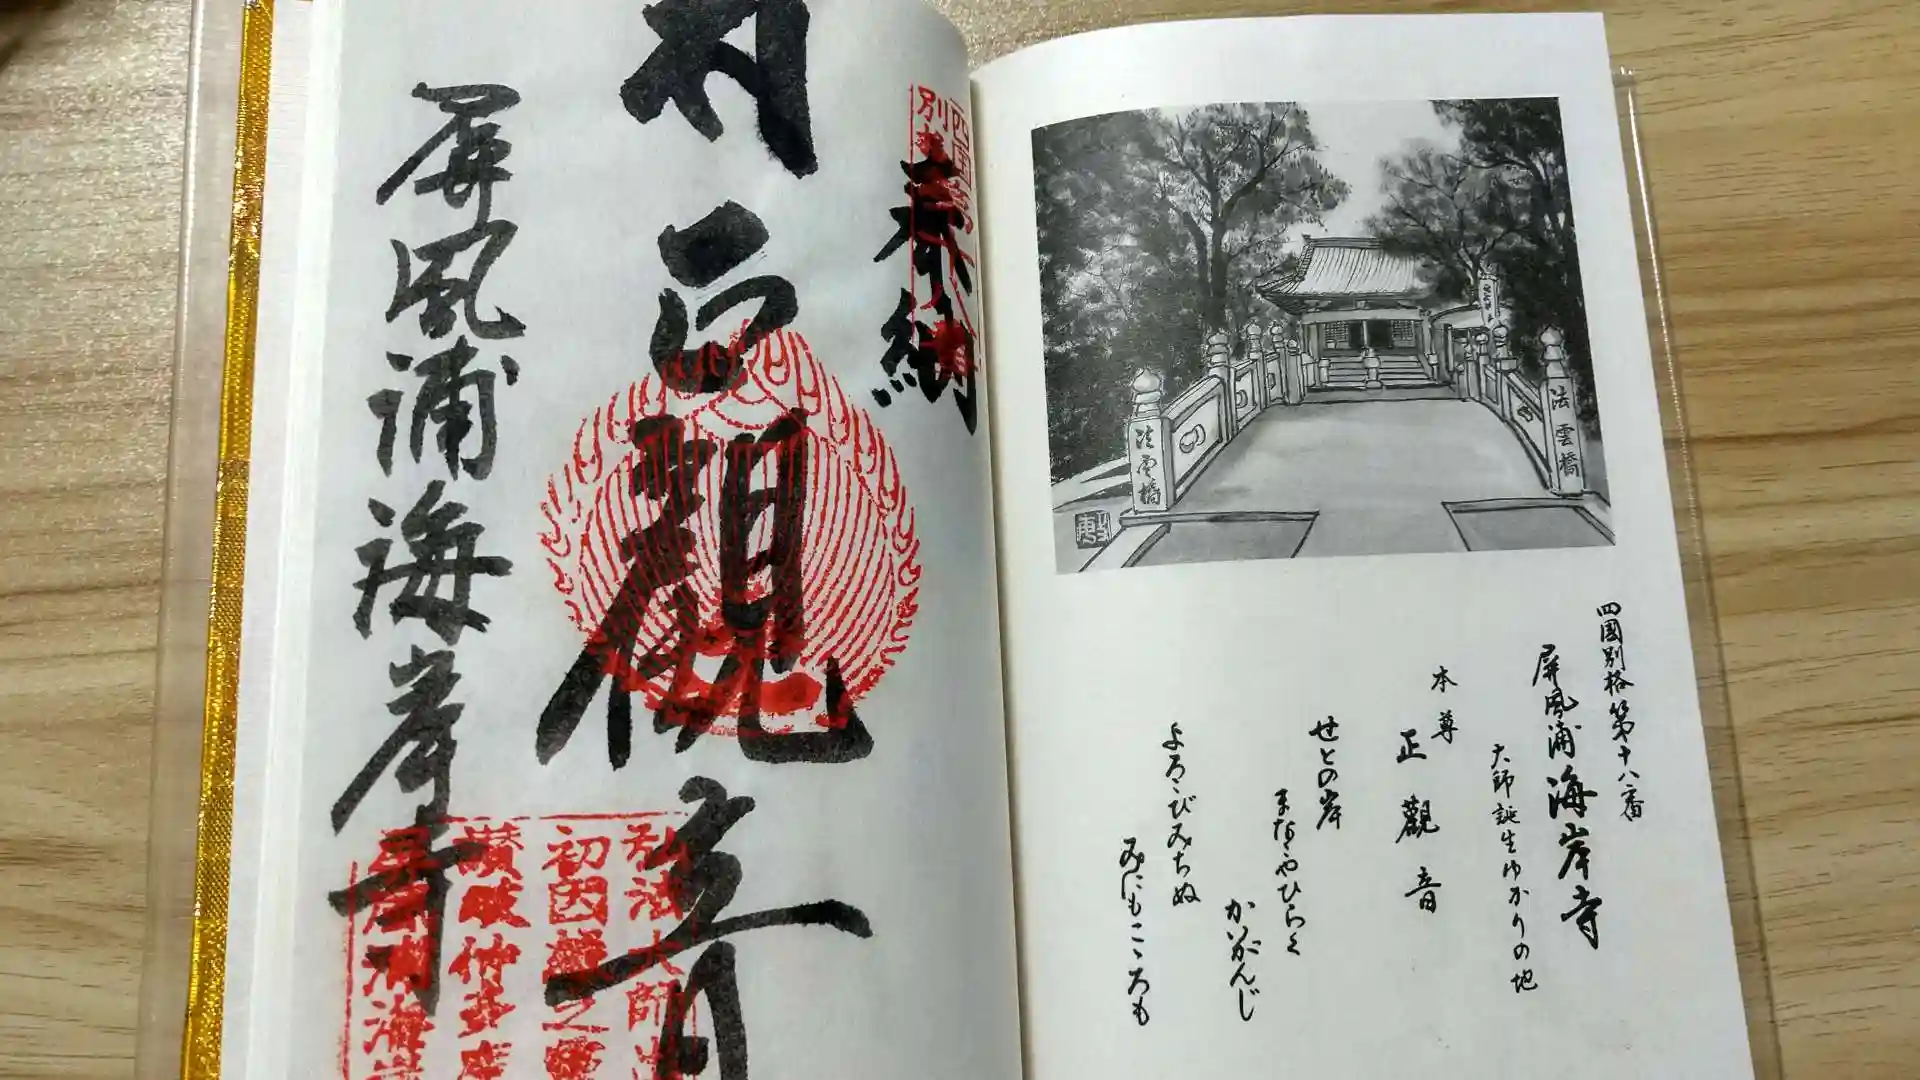 奉納
正観音
屏風浦海岸寺
四国
別格
弘法大師
初因縁之
讃岐仲多度
屏風浦海岸
法雲橋
法雲橋
四國別格第十八番
屏風浦海岸寺
大師誕生ゆかりの地
本尊
正觀音
せとの岸
まなこやひらく
かいがんじ
よろこびみちぬ
みにもこころも